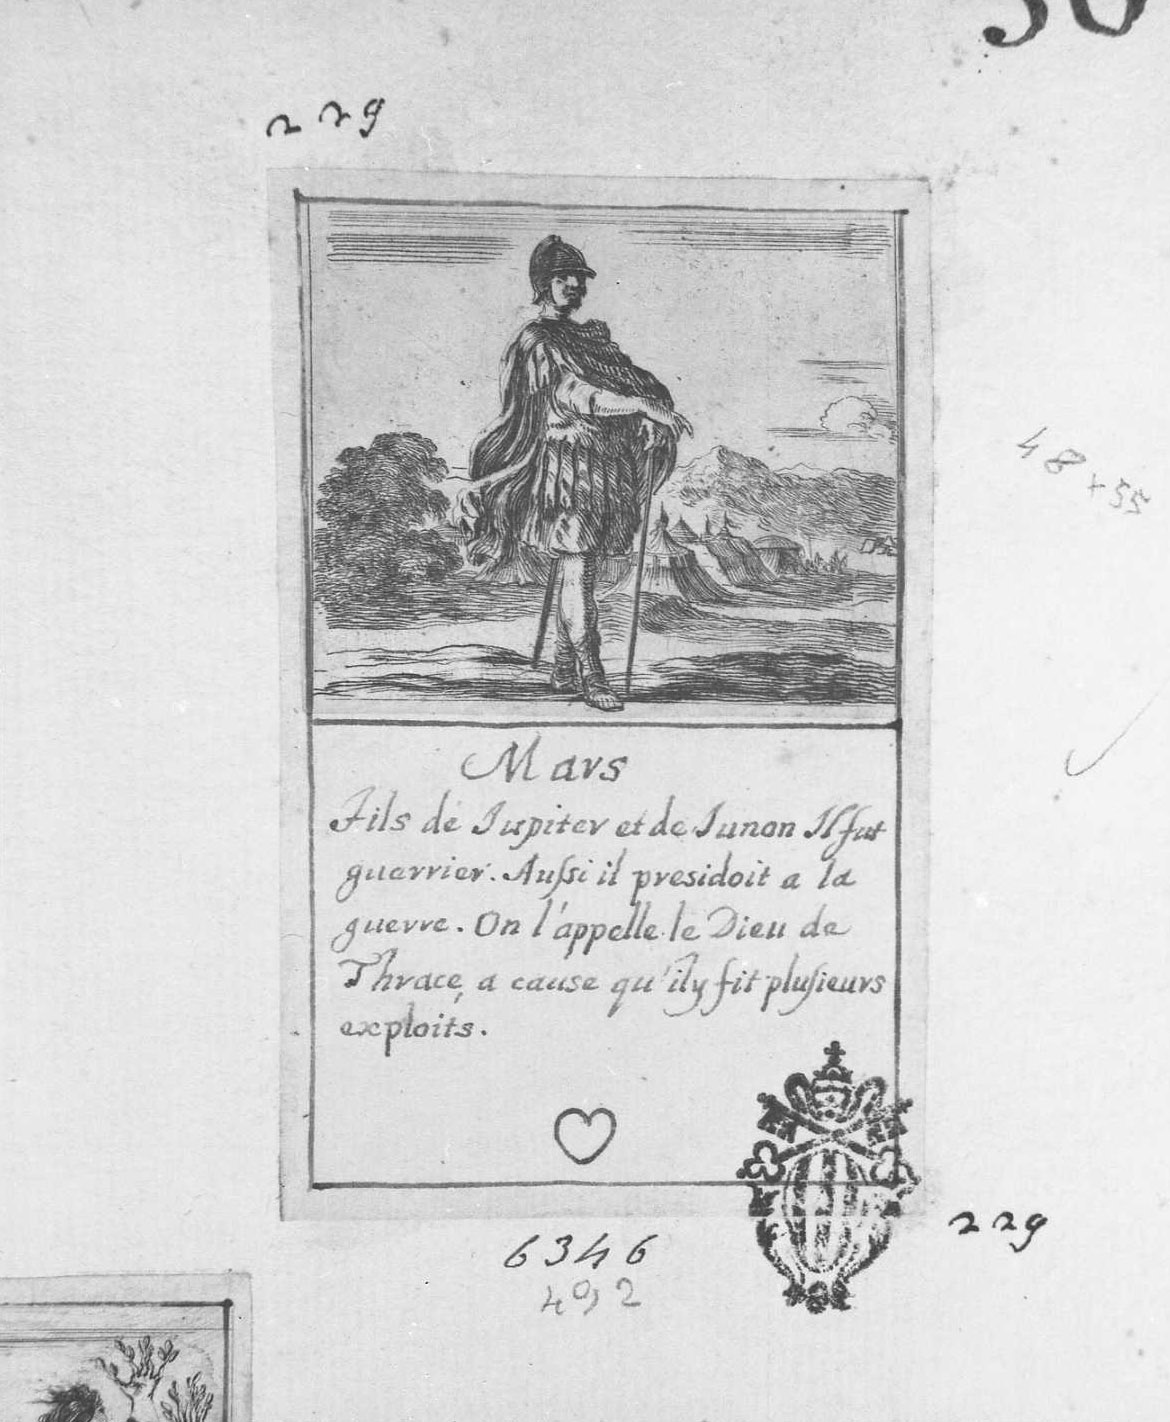 229
Mars
Fils de Iupiter et de Iunon Il fut
guerrier. Auſsi il presidoit a la
guerre. On l'appelle le Dieu de
Thrace, a cause qu'il y fit pluſieurs
exploits.
48 + 55
229
6346
492